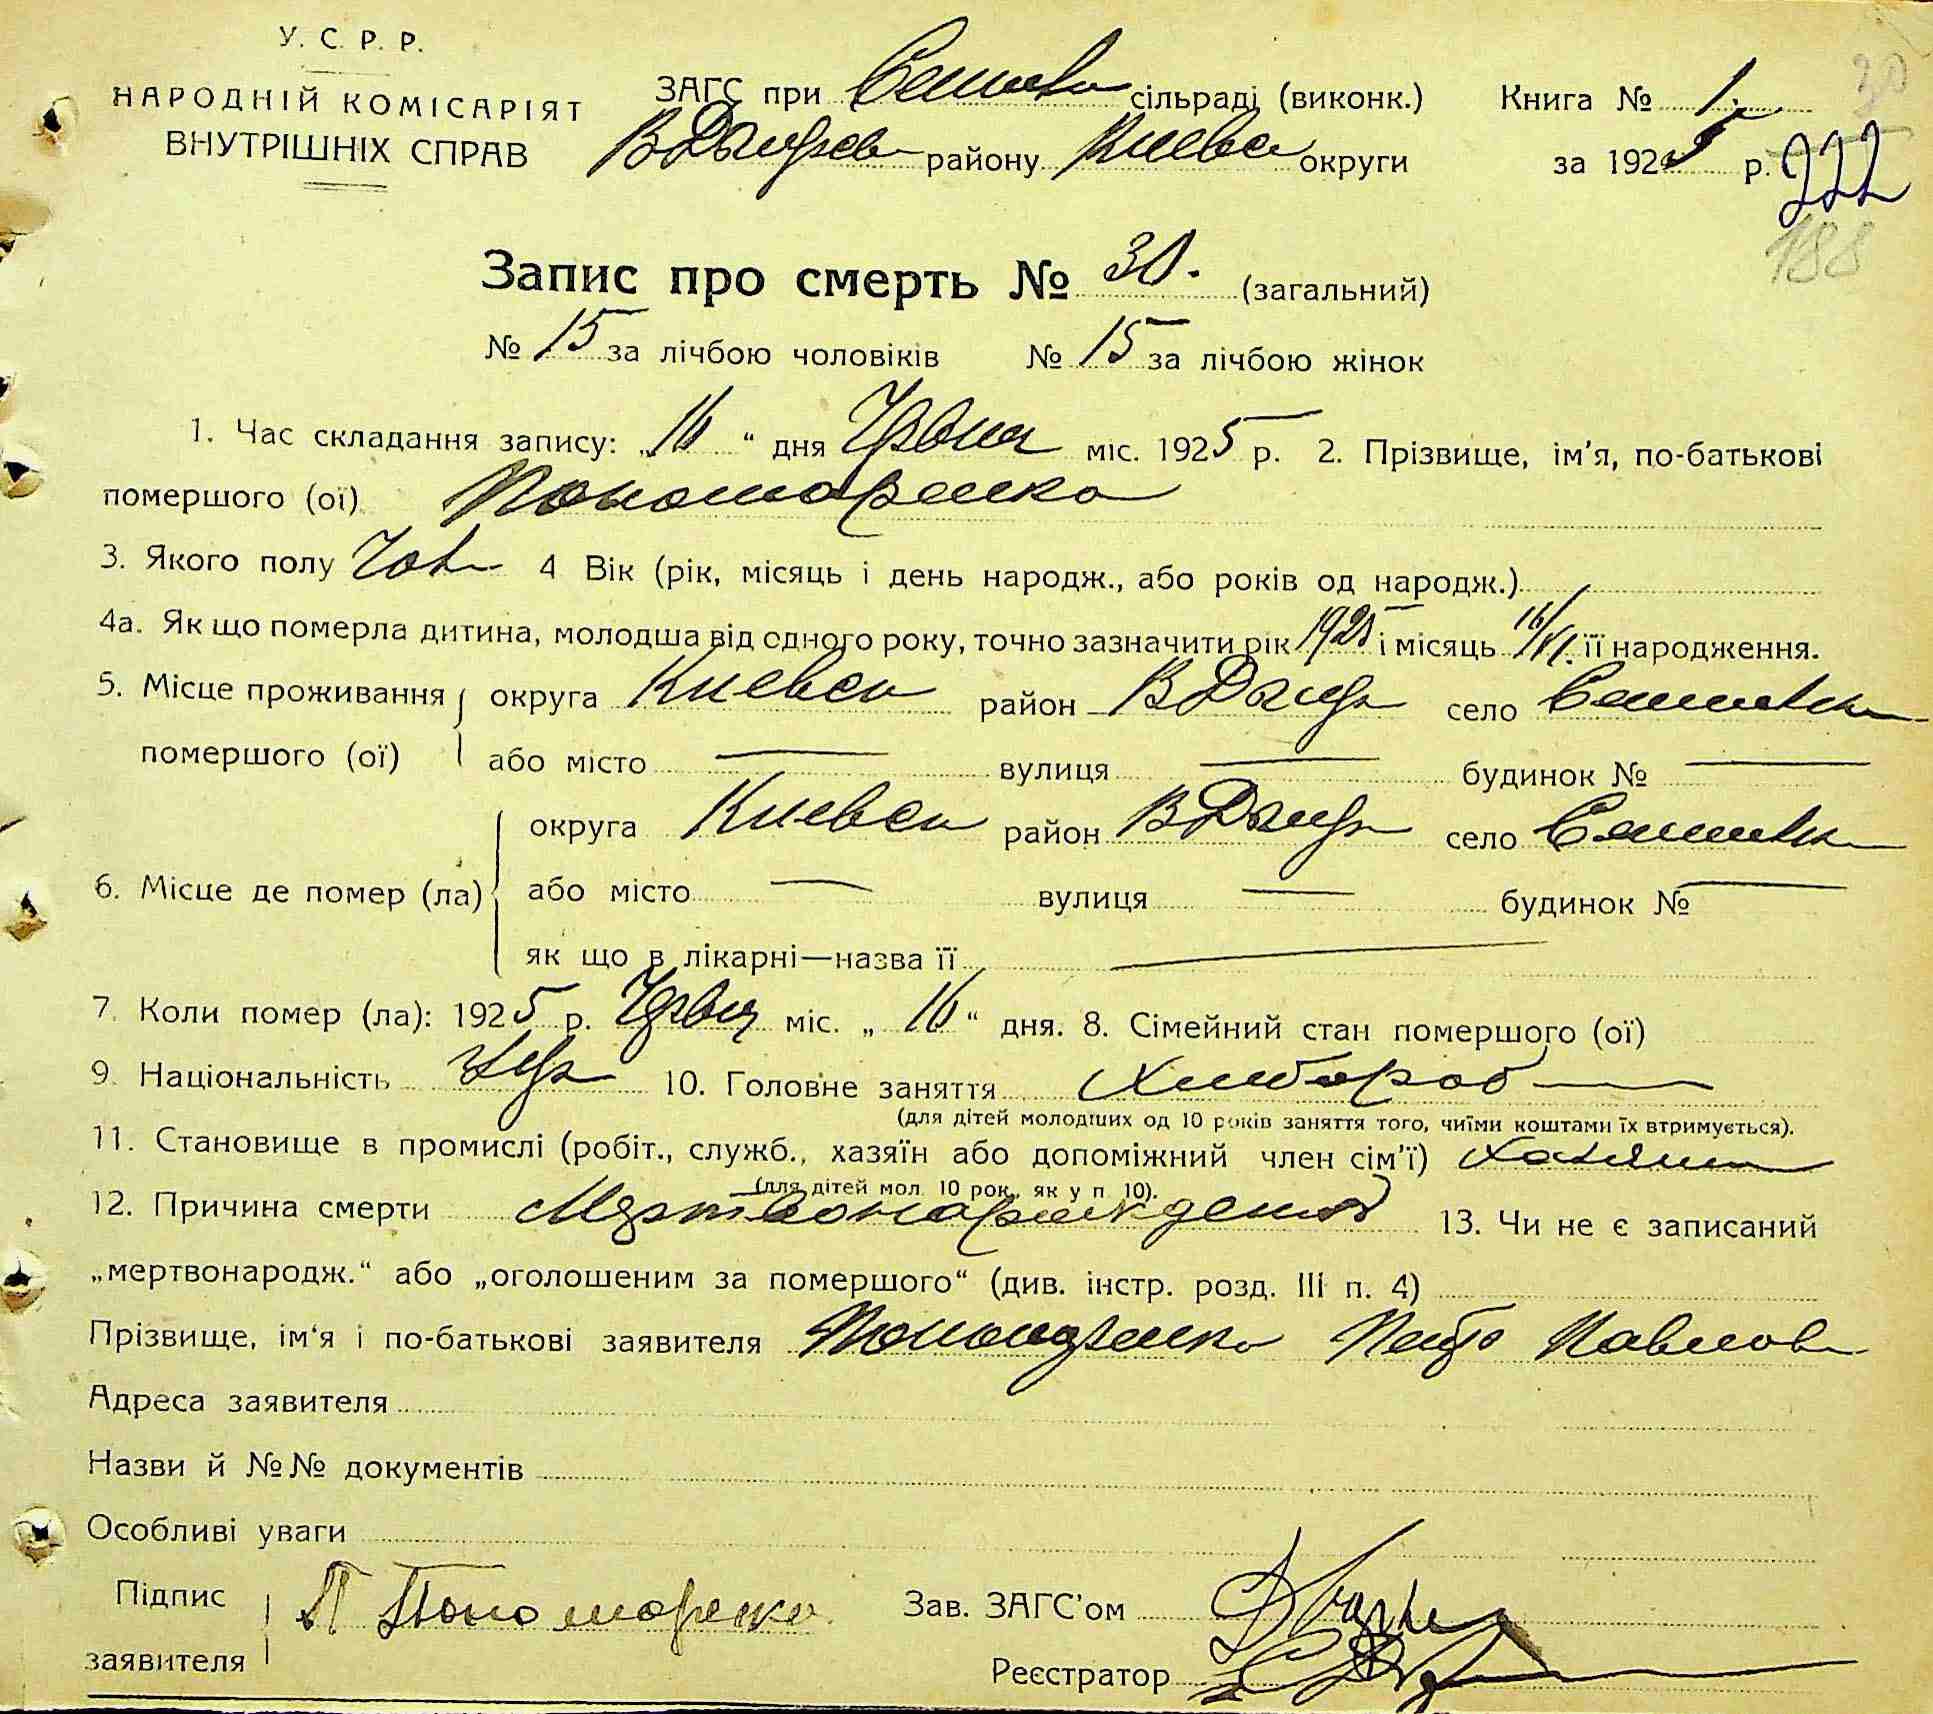 У. С. Р. Р.
НАРОДНІЙ КОМІСАРІЯТ
ВНУТРІШНІХ СПРАВ
ЗАГС при сільраді (виконк.) Книга № 1.
30
району Киевск округи за 1925 р. 222
188
Запис про смерть № 30. (загальний)
№ 15 за лічбою чоловіків № 15 за лічбою жінок
1. Час складання запису: „16“ дня Червня міс. 1925 р. 2. Прізвище, ім'я, по-батькові
помершого (ої) Пономаренко
3. Якого полу Чов 4 Вік (рік, місяць і день народж., або років од народж.)
4а. Як що померла дитина, молодша від одного року, точно зазначити рік 1925 і місяць 16/VI. її народження.
5. Місце проживання округа Киевск район В Дыцр село
помершого (ої) або місто — вулиця — будинок № —
округа Киевск район В Дыцр село
6. Місце де помер (ла) або місто — вулиця — будинок № —
як що в лікарні—назва її —
7. Коли помер (ла): 1925 р. Червня міс. „16“ дня. 8. Сімейний стан помершого (ої)
9. Національність Укр 10. Головне заняття Хлибороб —
(для дітей молодших од 10 років заняття того, чиїми коштами їх втримується).
11. Становище в промислі (робіт., служб., хазяїн або допоміжний член сім'ї) Хазяин
(для дітей мол. 10 рок., як у п. 10).
12. Причина смерти 13. Чи не є записаний
„мертвонародж.“ або „оголошеним за помершого“ (див. інстр. розд. III п. 4)
Прізвище, ім'я і по-батькові заявителя Пономаренко Петро Павлов
Адреса заявителя
Назви й №№ документів
Особливі уваги
Підпис заявителя П Пономаренко
Зав. ЗАГС'ом
Реєстратор